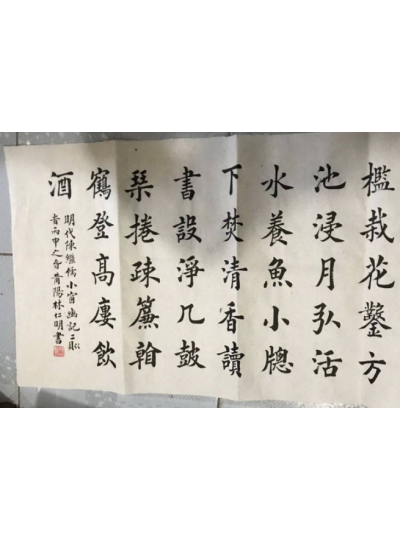 檻栽花鑿方
池浸月引活
水養魚小牕
下焚清香讀
書設淨几鼓
琹捲疎簾看
鶴登高廔飲
酒
明代陳繼儒小窗幽記二則
丙申之
林仁明書